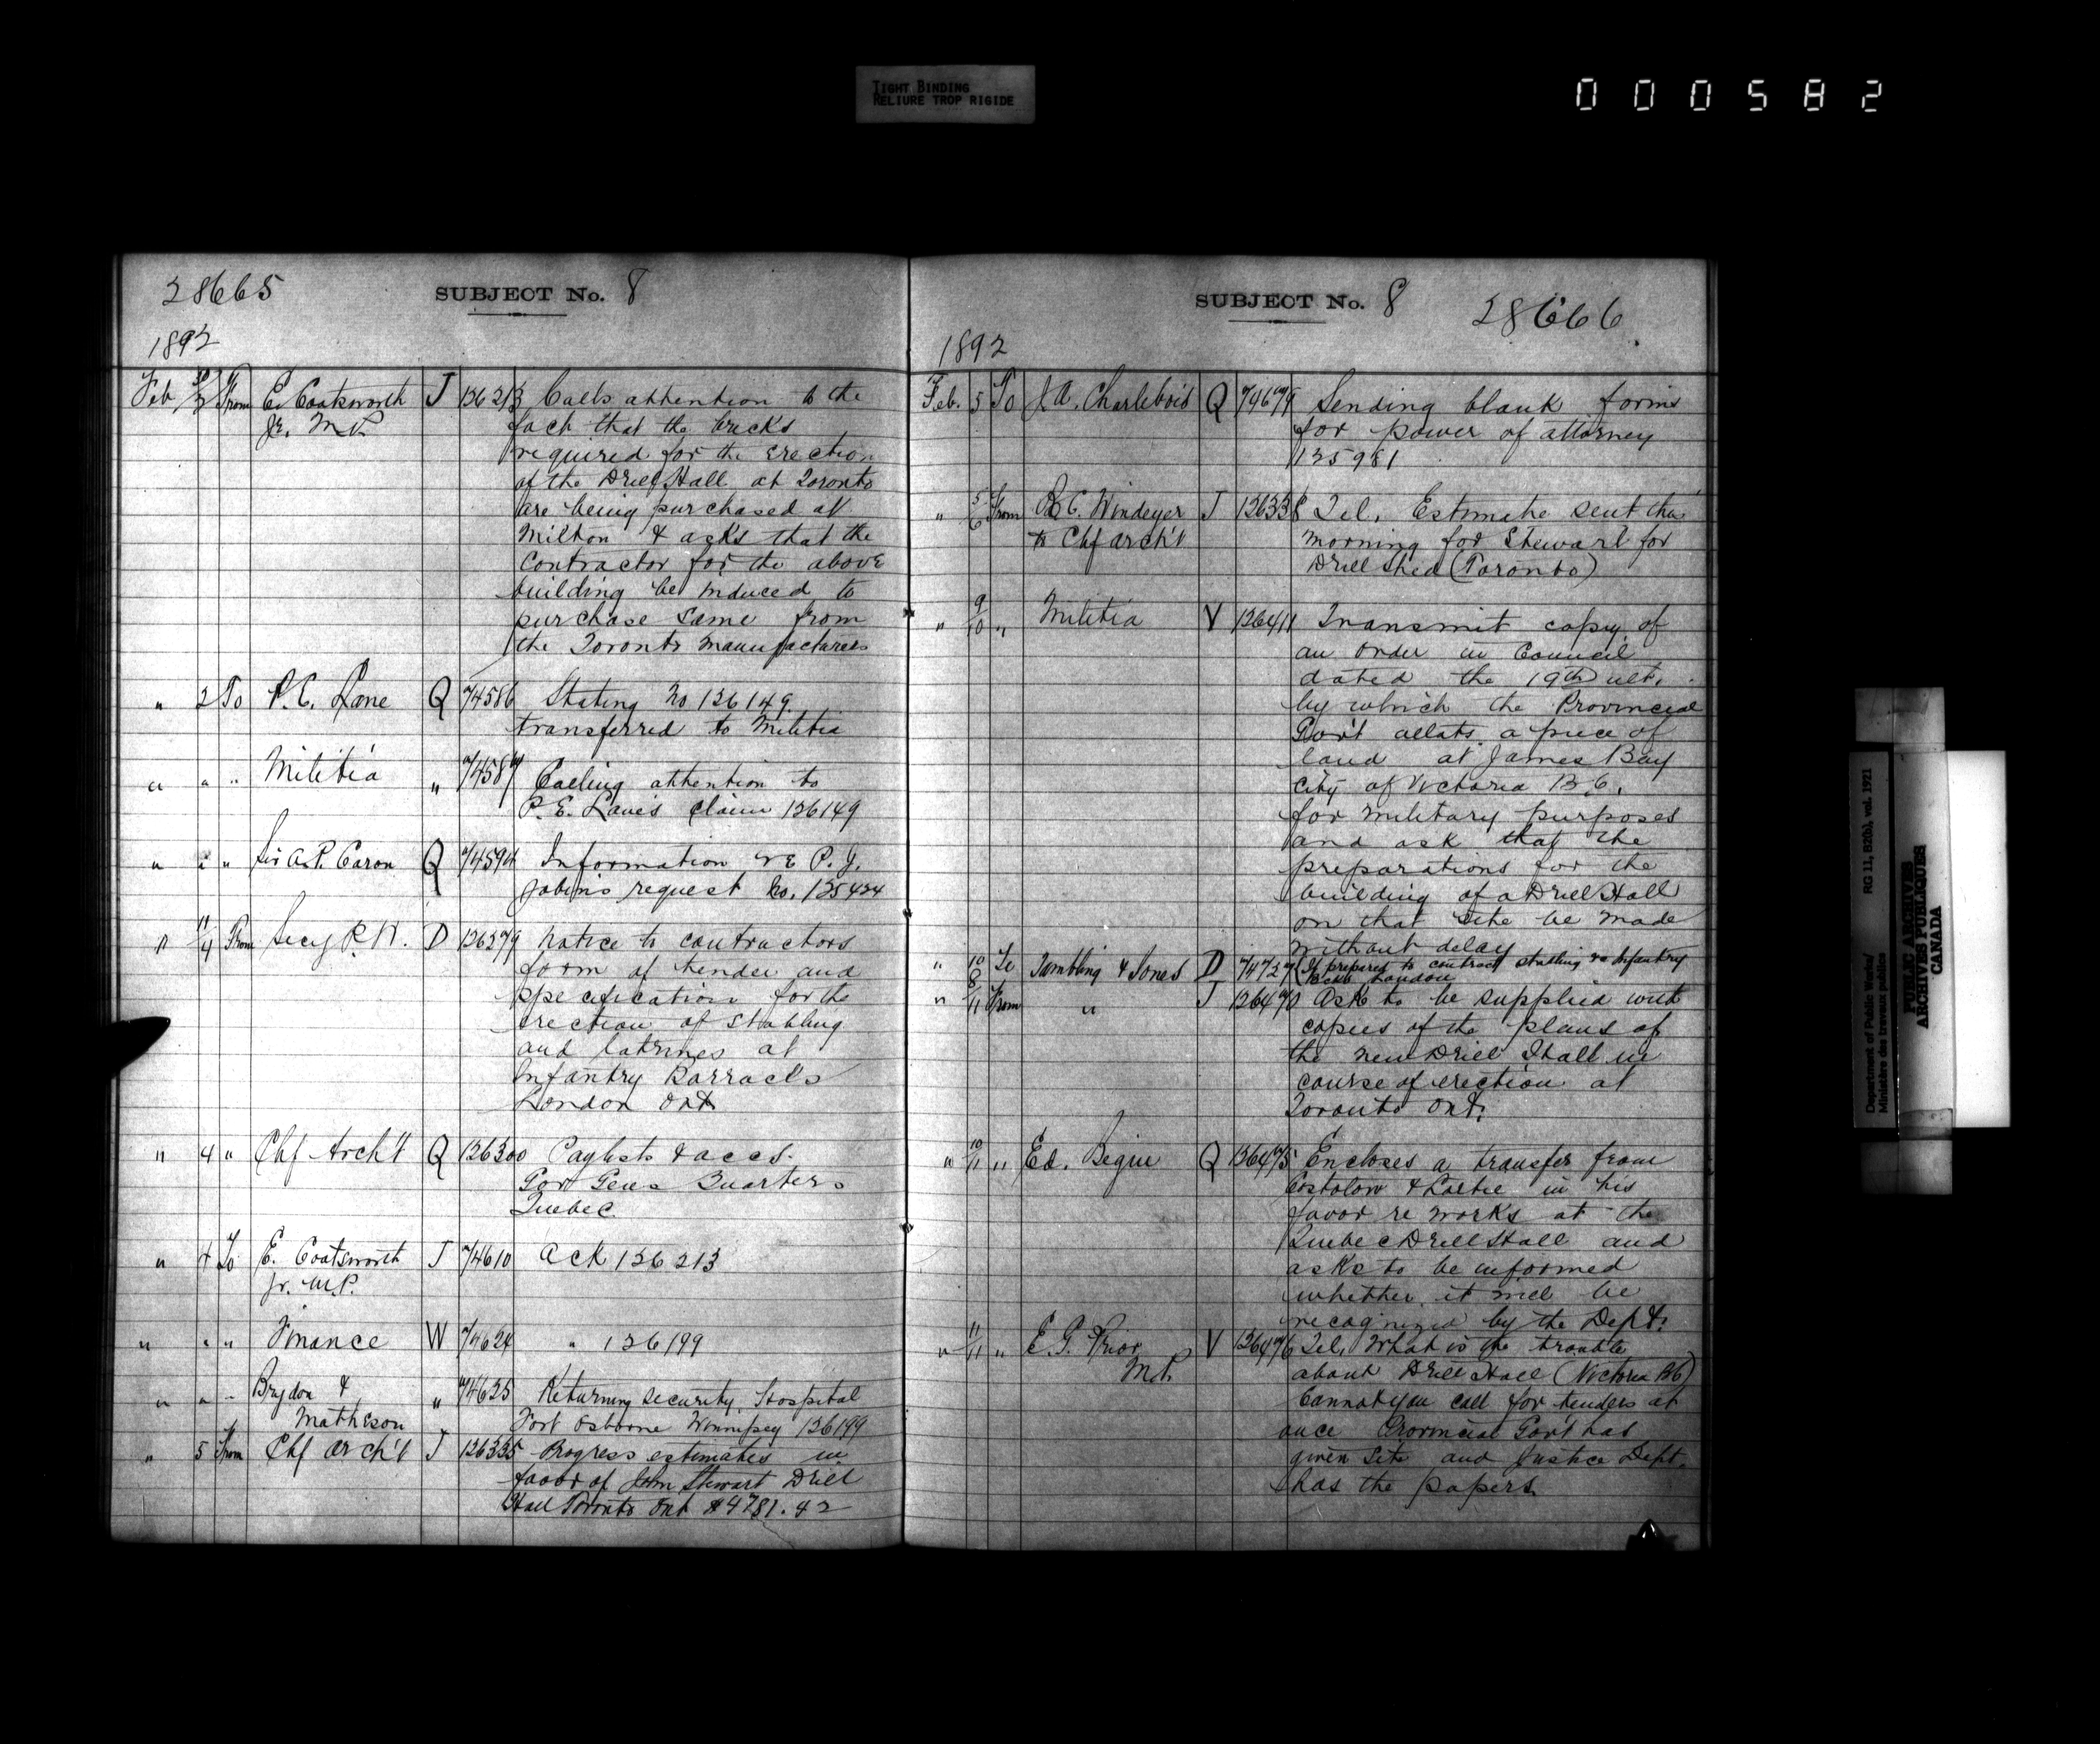 TIGHT BINDING
RELIURE TROP RIGIDE
000582
28665
SUBJECT No. 8
1892
Feb From E. Coatsworth J 136213 Calls attention to the
Jr. M.P. fact that the bricks
required for the erection
of the Drill Hall at Toronto
are being purchased at
Milton & asks that the
Contractor for the above
building be induced to
purchase same from
the Toronto manufacturers
" 2 To P.C. Lane Q 74586 Stating No 136149
transferred to Militia
" " " Militia " 74587 Calling attention to
P.E. Lane's claim 136149
" " " Sir A.P. Caron Q 74594 Information re P.J.
Jobin's request No. 135424
" 4 From Secy P.W. D 136279 Notice to contractors
form of tender and
specification for the
erection of Stabling
and latrines at
Infantry Barracks
London Ont
" 4 " Chf Arch't Q 136300 Paylists & accs.
Gov Gens Quarters
Quebec
" 4 To E. Coatsworth J 74610 Ack 136213
Jr. M.P.
" " " Finance W 74624 " 136199
" " " Brydon & " 74625 Returning security. Hospital
Matheson Fort Osborne Winnipeg 136199
" 5 From Chf Arch't J 136335 Progress estimates in
favor of John Stewart Drill
Hall Toronto Ont $4781.42
SUBJECT No. 8 28666
1892
Feb. 5 To J.A. Charlebois Q 74679 Sending blank forms
for power of attorney
135981
" 5/6 From R.C. Windeyer J 136338 Tel. Estimate sent this
to Chf Arch't morning for Stewart for
Drill Shed (Toronto)
" 9/10 " Militia V 136411 Transmit copy of
an Order in Council
dated the 19th ult.
by which the Provincial
Gov't allots a piece of
land at James Bay
City of Victoria B.C.
for military purposes
and ask that the
preparations for the
building of a Drill Hall
on that site be made
without delay
" 10 To Tambling & Jones D 74727 If prepared to contract stabling re Infantry
Bcks London
" 8/11 From " J 136470 Ask to be supplied with
copies of the plans of
the new Drill Hall in
course of erection at
Toronto Ont.
" 10/11 " Ed. Begin Q 136475 Encloses a transfer from
& in his
favor re works at the
Quebec Drill Hall and
asks to be informed
whether it will be
recognized by the Dept.
" 11/11 " E.G. Prior V 136476 Tel. What is the trouble
M.P. about Drill Hall (Victoria BC)
Cannot you call for tenders at
once Provincial Gov't has
given site and Justice Dept.
has the papers
Department of Public Works/
Ministère des travaux publics
RG 11, B2(b), vol. 1921
PUBLIC ARCHIVES
ARCHIVES PUBLIQUES
CANADA